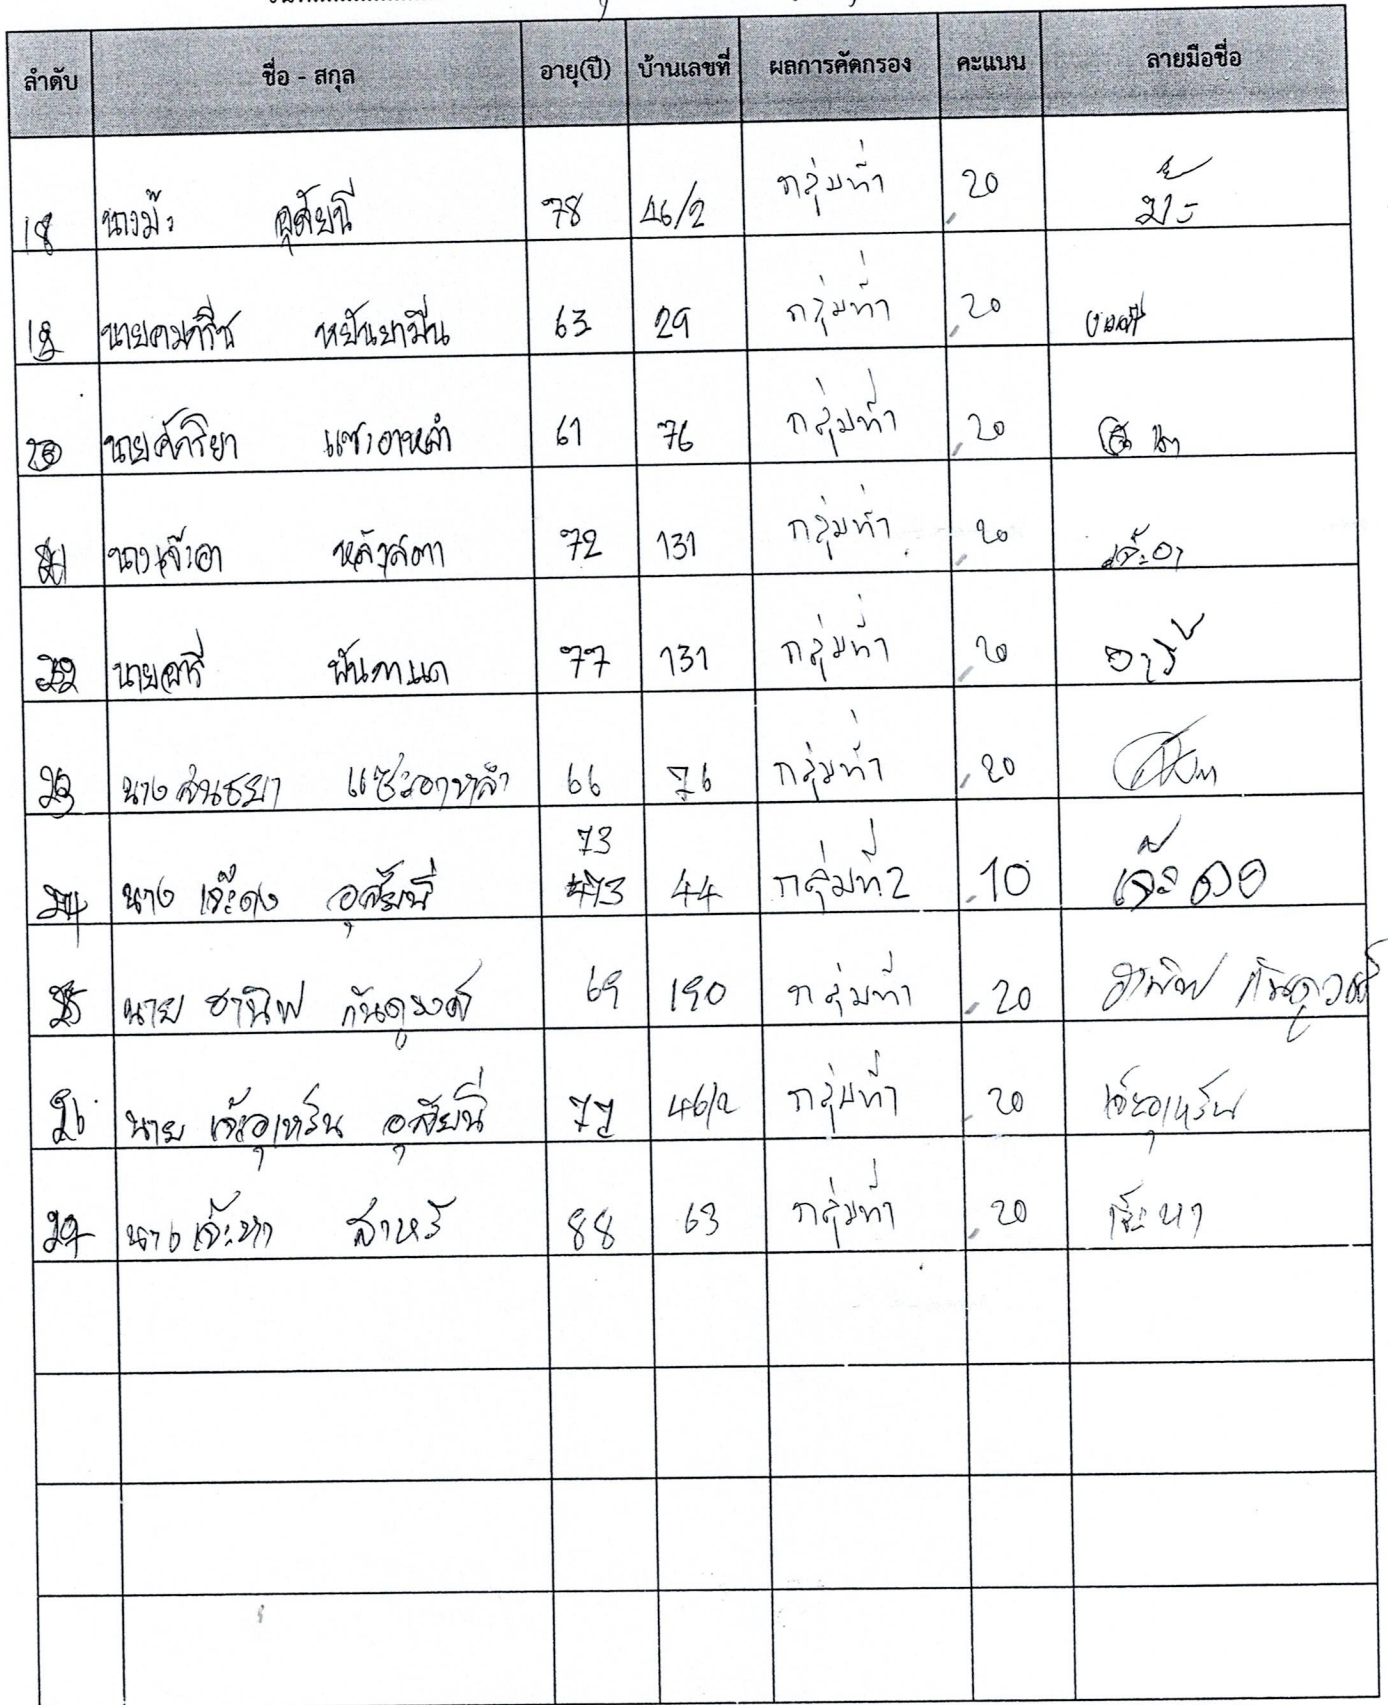 ลำดับ ชื่อ - สกุล อายุ(ปี) บ้านเลขที่ ผลการคัดกรอง คะแนน ลายมือชื่อ
18 นางม๊ะ อุสัยนี 78 46/2 กลุ่มที่1 20
19 63 29 กลุ่มที่1 20
20 นายศักริยา แซะอาหลำ 61 76 กลุ่มที่1 20
21 นางเจ๊ะอา หลังสตา 72 131 กลุ่มที่1 20 เจ๊ะอา
22 นายอารี 77 131 กลุ่มที่1 20 อารี
23 นาง สนธยา แซะอาหลำ 66 76 กลุ่มที่1 20
24 นาง เจ๊ะดง อุสัยนี 73 44 กลุ่มที่2 10
25 นาย ฮานิฟ กันดูวงศ์ 69 190 กลุ่มที่1 20 ฮานิฟ กันดูวงศ์
26 นาย เจ๊ะอุเหร็น อุสัยนี 77 46/2 กลุ่มที่1 20 เจ๊ะอุเหร็น
27 นาง เจ๊ะหา สาหรี 88 63 กลุ่มที่1 20 เจ๊ะหา